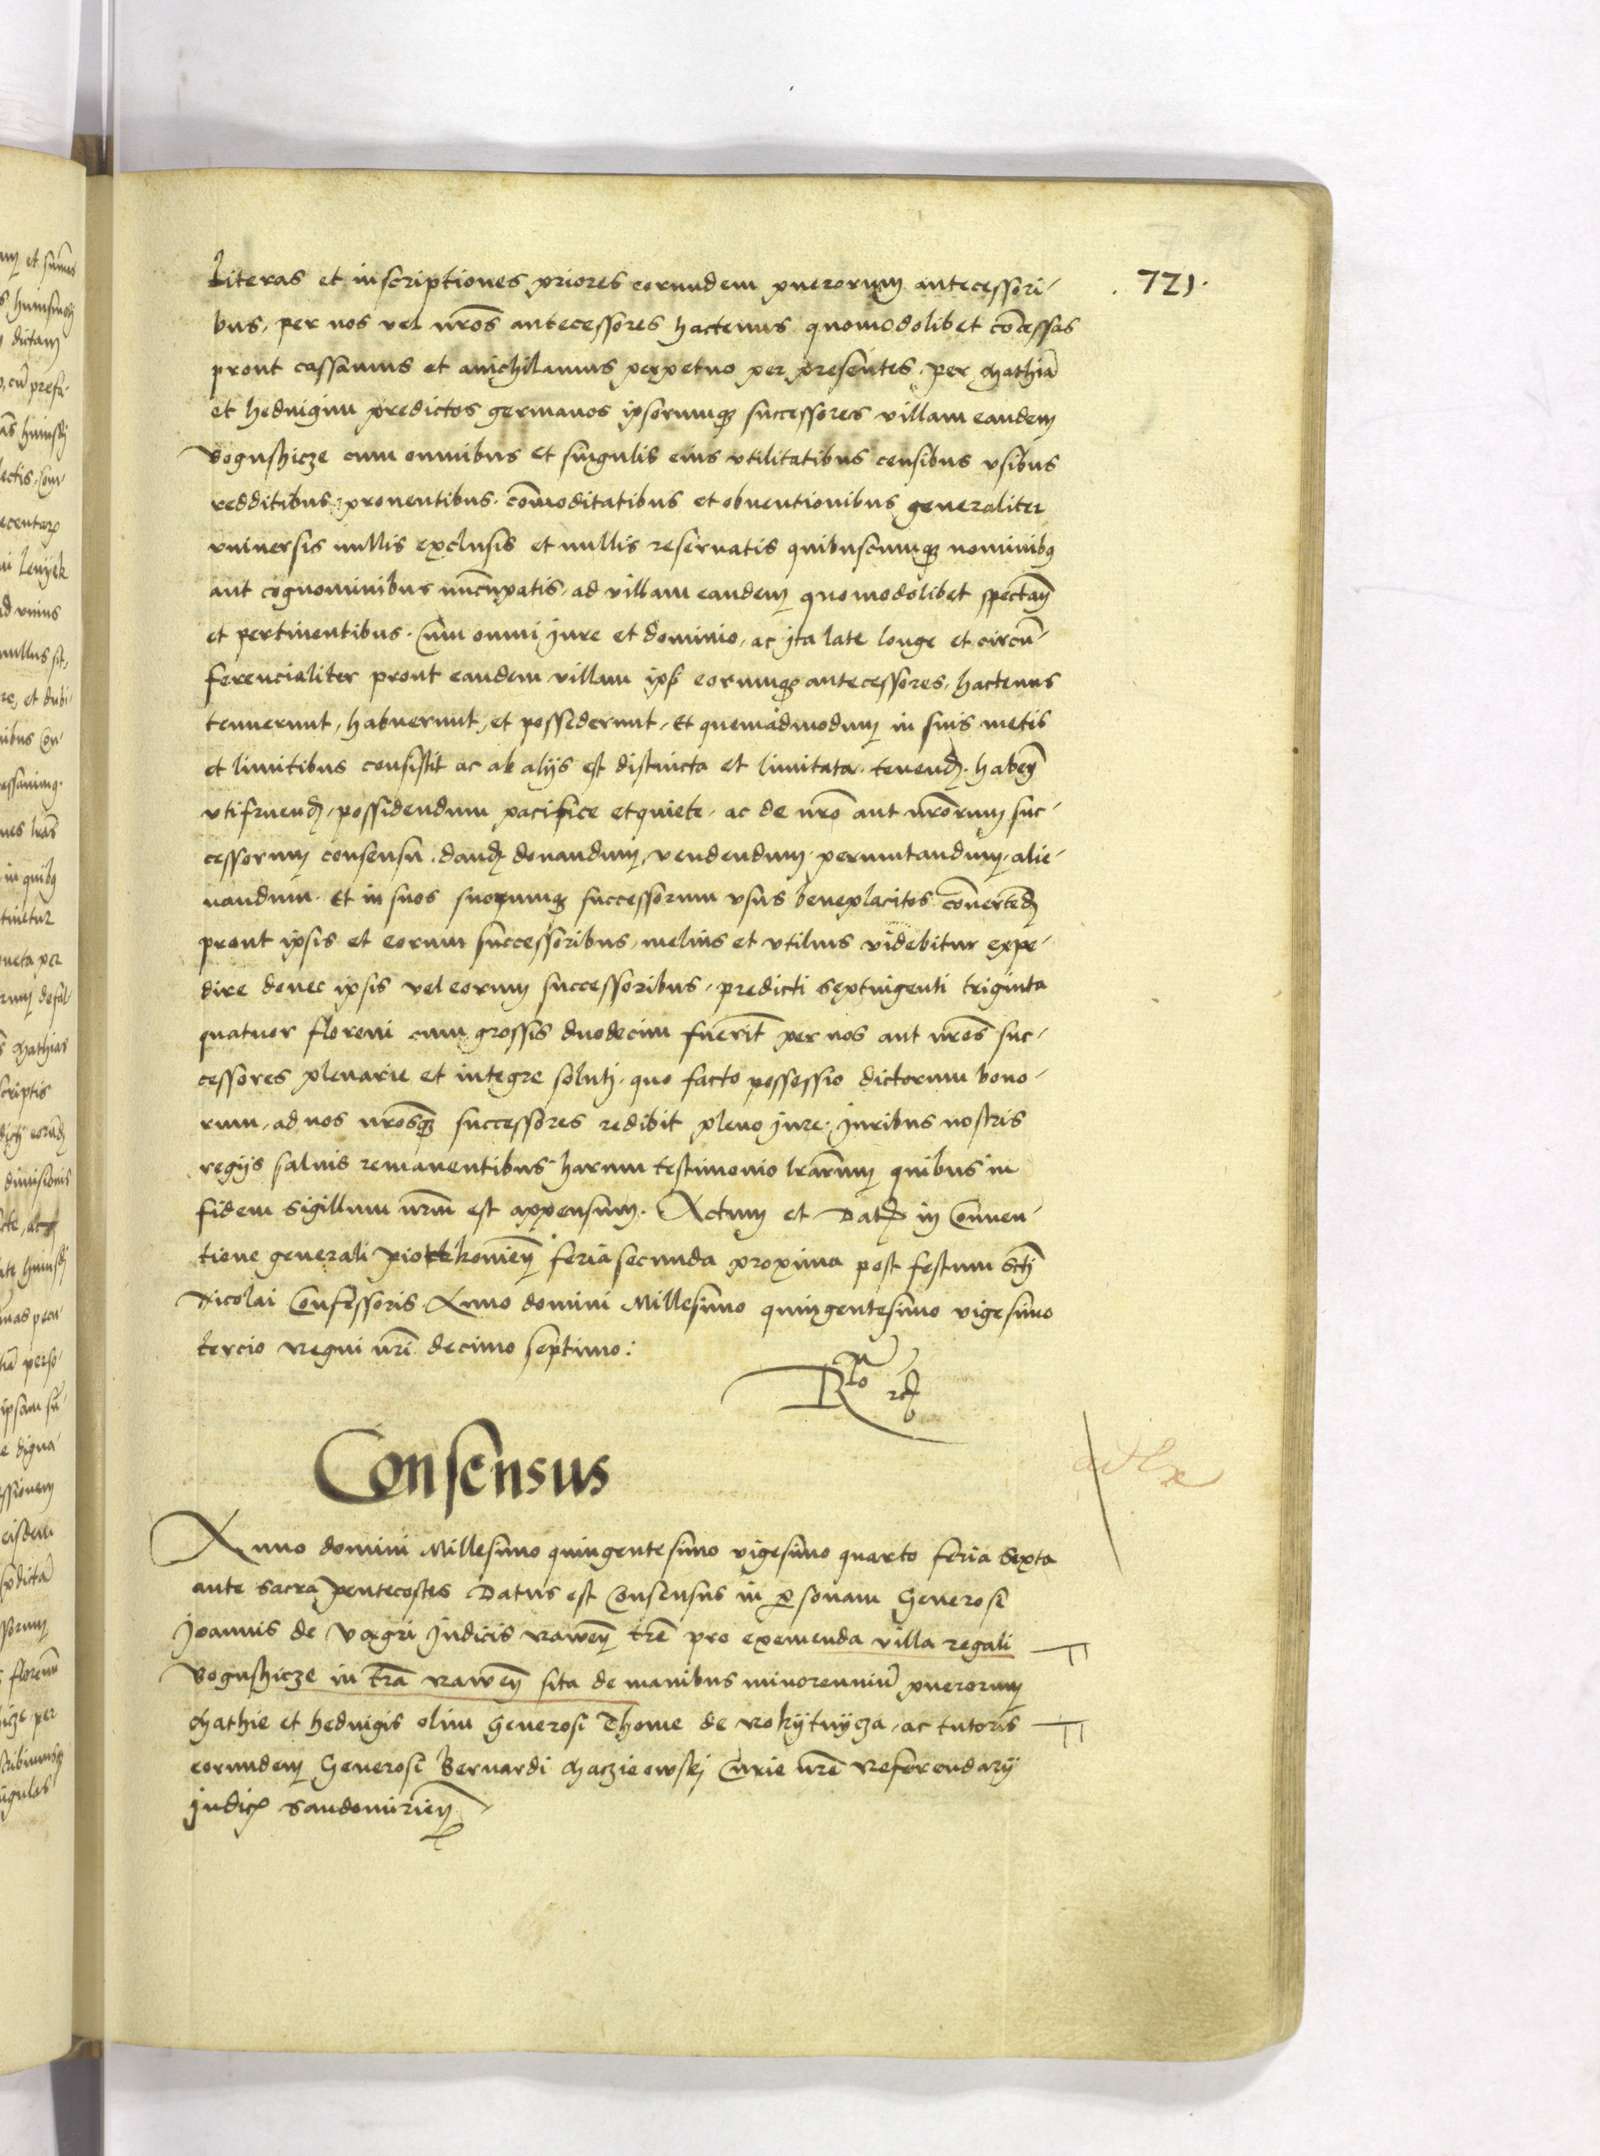 721.
Literas et inscriptiones priores eorundem puerorum antecessori-
bus, per nos vel nr̃os antecessores hactenus quomodolibet cõcessas
prout cassamus et anichilamus perpetuo per presentes, per Mathiã
et Heduigim predictos germanos ipsorumq successores villam eandem
Boguschicze cum omnibus et singulis eius vtilitatibus censibus vsibus
redditibus, prouentibus, com̃oditatibus et obuentionibus generaliter
vniuersis nullis exclusis et nullis reseruatis quibuscumq nominibq
aut cognominibus nũcupatis, ad villam eandem quomodolibet spectañ
et pertinentibus. Cum omni jure et dominio, ac jta late longe et circũ-
ferencialiter prout eandem villam ipsi eorumq antecessores, hactenus
tenuerunt, habuerunt, et possederunt, Et quemadmodum in suis metis
et limitibus consistit ac ab alijs est distincta et limitata, tenend, habeñ
vtifruend, possidendum pacifice et quiete, ac de nr̃o aut nr̃orum suc-
cessorum consensu dand donandum, vendendum, permutandum, alie-
nandum. Et in suos suorumq successorum vsus beneplacitos cõuertend
prout ipsis et eorum successoribus, melius et vtilius videbitur expe-
dire donec ipsis vel eorum successoribus, predicti septingenti triginta
quatuor floreni cum grossis duodecim fuerĩt per nos aut nr̃os suc-
cessores plenarie et integre solutj, quo facto possessio dictorum bono-
rum, ad nos nr̃osq successores redibit pleno jure. Juribus nostris
regijs saluis remanentibus harum testimonio lr̃arum quibus in
fidem sigillum nr̃um est appensum. Actum et Dat in Conuen-
tione generali piotrkouieñ feria secunda proxima post festum sctj
Nicolai Confessoris Anno domini Millesimo quingentesimo vigesimo
tercio Regni nr̃i decimo septimo:
Consensus
Anno domini Millesimo quingentesimo vigesimo quarto feria sexta
ante sacra pentecostes Datus est Consensus in personam Generosi
Joannis de Vagri Judicis Raweñ tr̃e pro eximenda villa regali
Boguschicze in tr̃a Raweñ sita de manibus minorenniũ puerorum
Mathie et Heduigis olim Generosi Thome de Rokytnycza, ac tutoris
eorundem Generosi Bernardi Maczieiowskj Curie nr̃e Referendarij
Judic Sandomirieñ